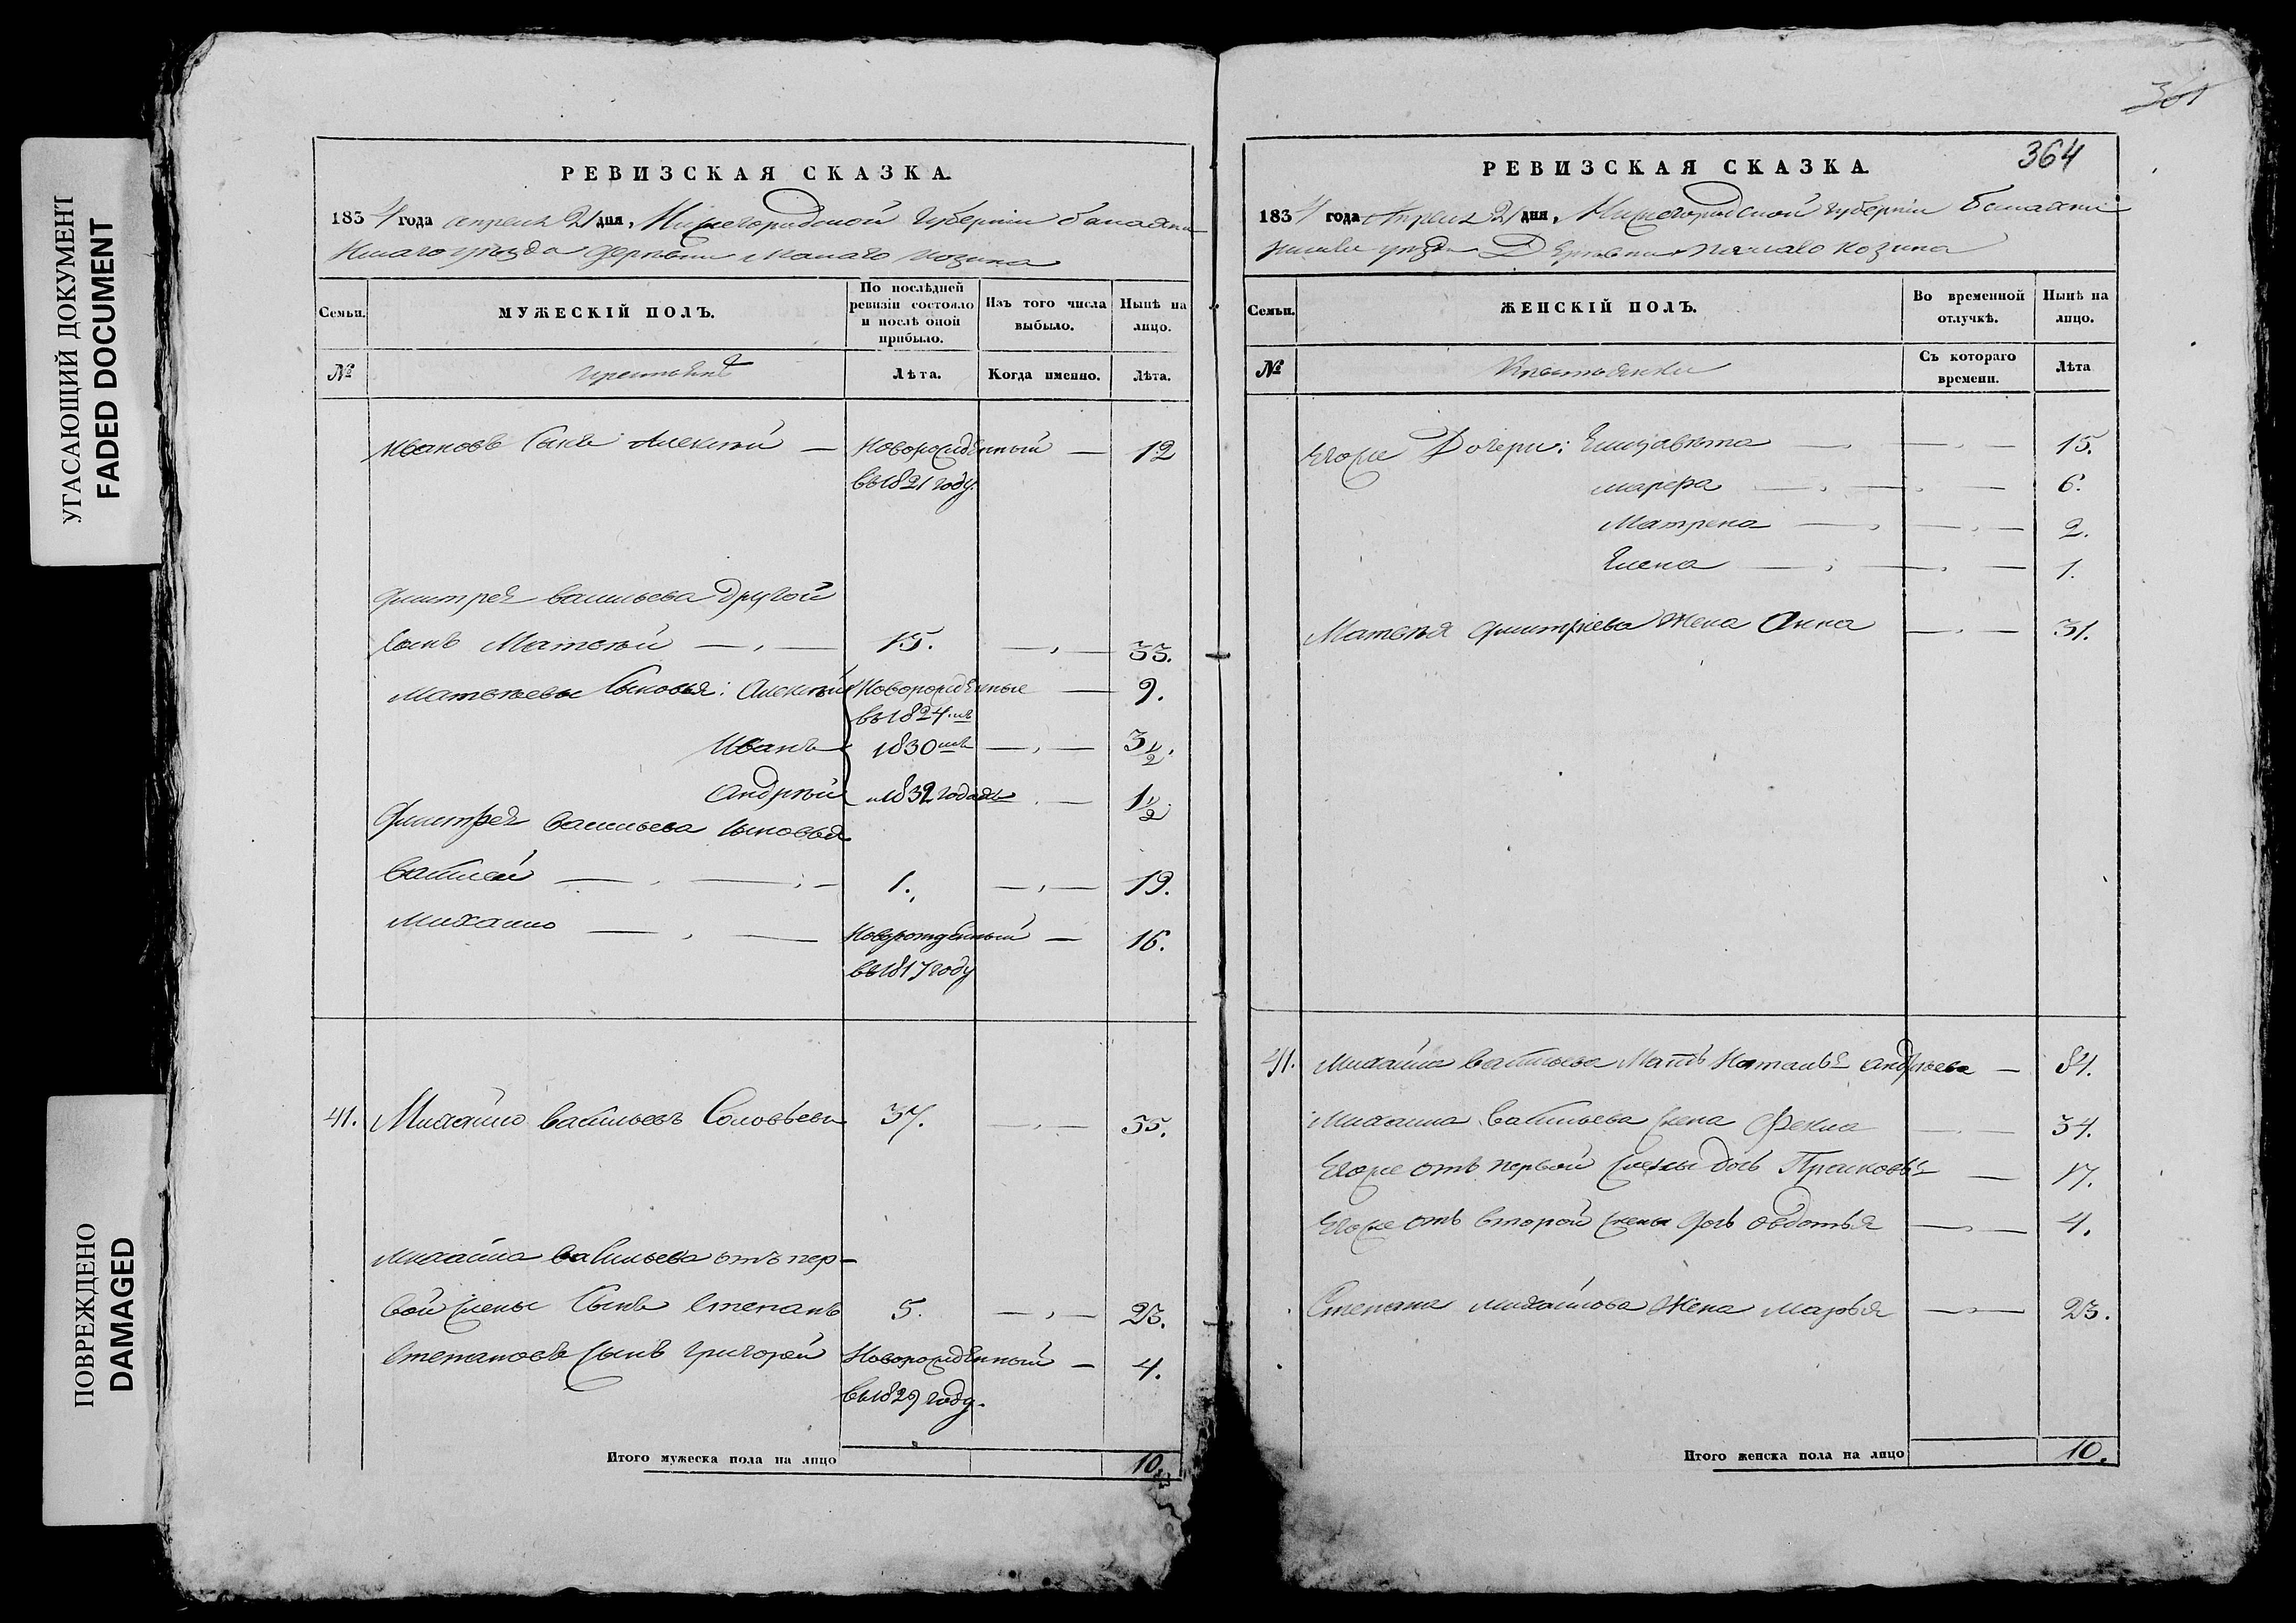 УГАСАЮЩИЙ ДОКУМЕНТ
FADED DOCUMENT
ПОВРЕЖДЕНО
DAMAGED
РЕВИЗСКАЯ СКАЗКА.
1834 года апреля 21 дня, Нижегородской губернiи балахни
нскаго уѣзда деревни Малаго козина
Семьи.
МУЖЕСКIЙ ПОЛЪ.
По послѣдней ревизiи состояло и послѣ оной прибыло.
Изъ того числа выбыло.
Нынѣ на лицо.
№
крестьянѣ
Лѣта.
Когда именно.
Лѣта.
Ивановъ Сынъ Алексѣй — Новорожденный — 12
въ 1821 году.
Дмитрея васильева другой
Сынъ Матвѣй — 15. — 33.
Матвѣевы Сыновья: Алексѣй Новорожденные — 9.
въ 1824 мъ
Иванъ 1830 мъ — 3 1/2.
Андрѣй и 1832 годахъ — 1 1/2
Дмитрея васильева сыновья
Василей — 1. — 19.
Михаило — Новорожденный — 16.
въ 1817 году
41. Михайло васильевъ Соловьевъ 37. — 55.
Михайла васильева отъ пер-
вой жены Сынъ Степанъ 5. — 23.
Степановъ сынъ григорей Новорожденный — 4.
въ 1829 году.
Итого мужеска пола на лицо 10.
361
364
РЕВИЗСКАЯ СКАЗКА.
1834 года Апреля 21 дня, Нижегородской губернiи Балахни
нскаго уѣзда Деревни Малаго козина
Семьи.
ЖЕНСКIЙ ПОЛЪ.
Во временной отлучкѣ.
Нынѣ на лицо.
№
Крестьянки
Съ котораго времени.
Лѣта
Егоже Дочери: Елизавета — 15.
марфа — 6.
Матрена — 2.
Елена — 1.
Матвѣя Дмитрiева Жена Анна — 31.
41. Михайла васильева Мать Наталья андреева — 84.
Михаила васильева жена Фекла — 34.
Егоже отъ первой жены дочь Прасковья — 17.
Егоже отъ второй жены дочь овдотья — 4.
Степана михайлова Жена марья — 23.
Итого женска пола на лицо 10.